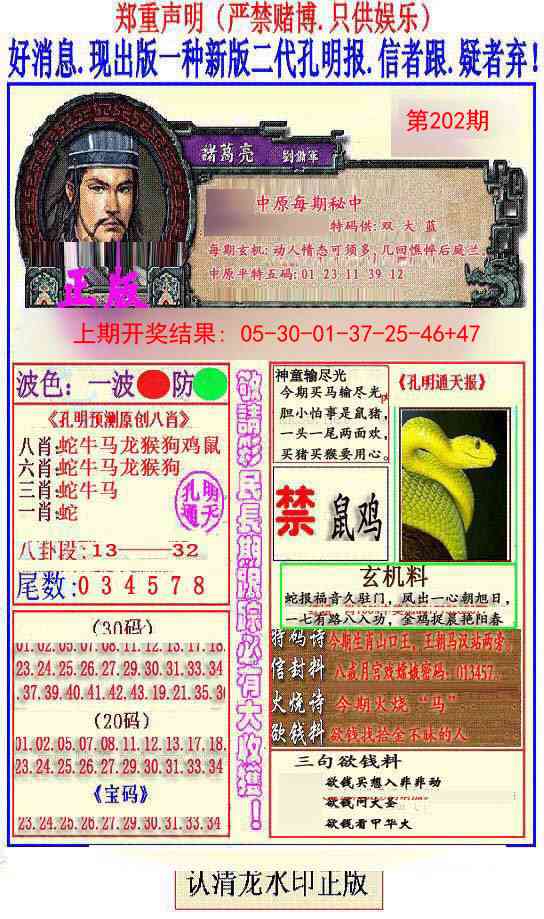 郑重声明（严禁赌博.只供娱乐）
好消息.现出版一种新版二代孔明报.信者跟.疑者弃!
第202期
諸葛亮
中原每期秘中
特码供:双 大 蓝
每期玄机:动人情态可须多,几回憔悴后庭兰.
中原平特五码:01 23 11 39 12
正版
上期开奖结果: 05-30-01-37-25-46+47
波色：一波 防
《孔明预测原创八肖》
八肖:蛇牛马龙猴狗鸡鼠
六肖:蛇牛马龙猴狗
三肖:蛇牛马
一肖:蛇
孔明通天
八卦段:13——32
尾数:034578
(30码)
01.02.05.07.08.11.12.13.17.18.
23.24.25.26.27.29.30.31.33.34
.37.39.40.41.42.43.19.21.35.36
(20码)
01.02.05.07.08.11.12.13.17.18.
23.24.25.26.27.29.30.31.33.34
《宝码》
23.24.25.26.27.29.30.31.33.34
敬請彩民長期跟踪必有大收獲！
神童输尽光
今期买马输尽光,
胆小怕事是鼠猪,
一头一尾两面欢,
买猪买猴要用心。
禁 鼠鸡
《孔明通天报》
玄机料
蛇报福音久驻门，凤出一心朝旭日,
一七有路八入功，金鸡捉裹艳阳春
特码诗 今期生肖山口王，王朝马汉站两旁。
信封料 八戒月宫戏嫦娥密码：013457.
火烧诗 今期火烧“马”
欲钱料 欲钱找拾金不昧的人
三句欲钱料
欲钱买想入非非动
欲钱问大圣
欲钱看甲华火
认清龙水印正版